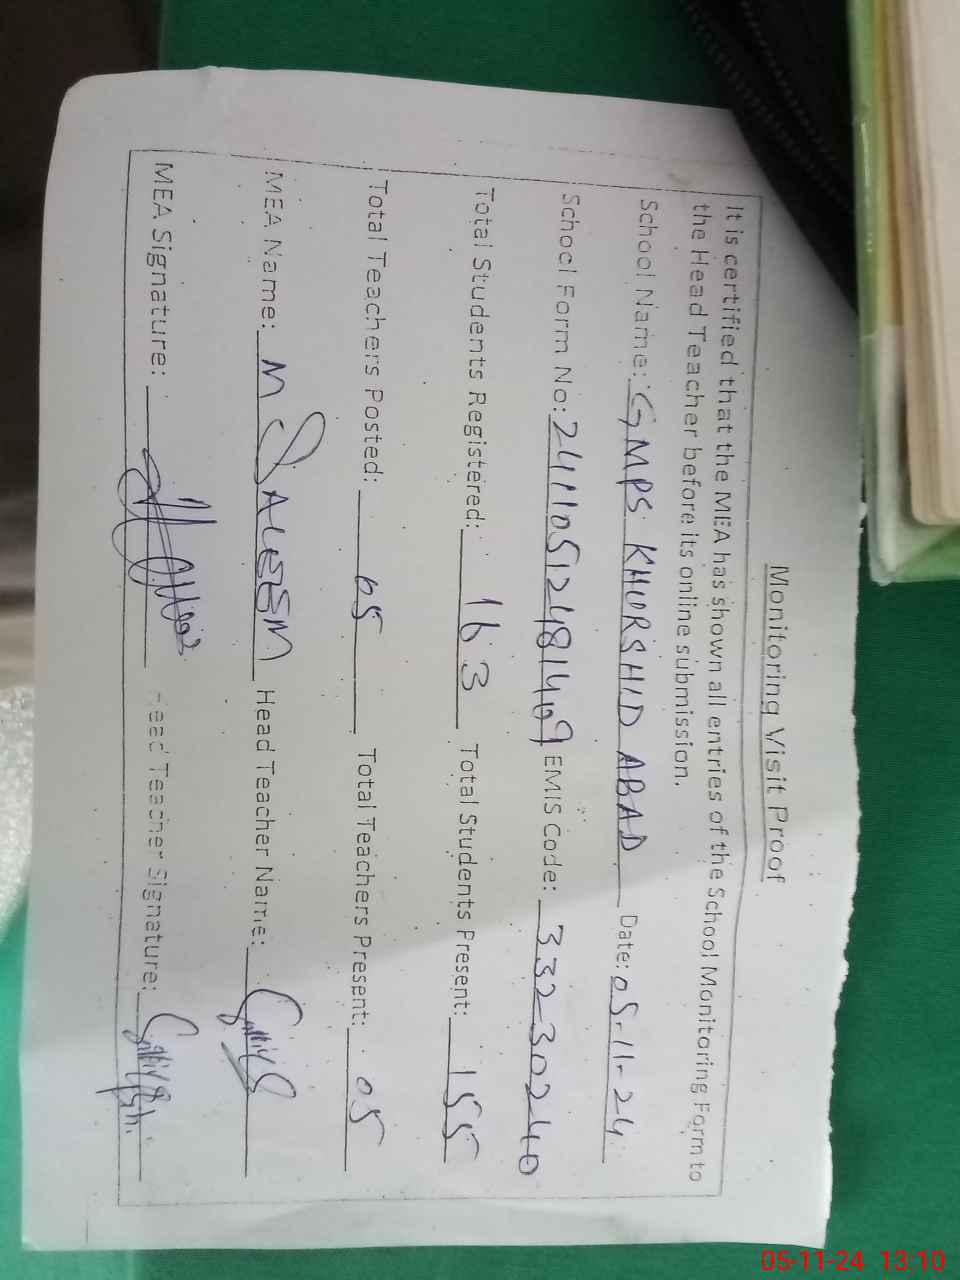 Monitoring Visit Proof
It is certified that the MEA has shown all entries of the School Monitoring Form to
the Head Teacher before its online submission.
School Name: GMPS KHURSHID ABAD Date: 05-11-24
School Form No: 24110512481409 EMIS Code: 33230240
Total Students Registered: 163 Total Students Present: 155
Total Teachers Posted: 05 Total Teachers Present: 05
MEA Name: M SALEEM Head Teacher Name:
MEA Signature: Head Teacher Signature:
05-11-24 13:10